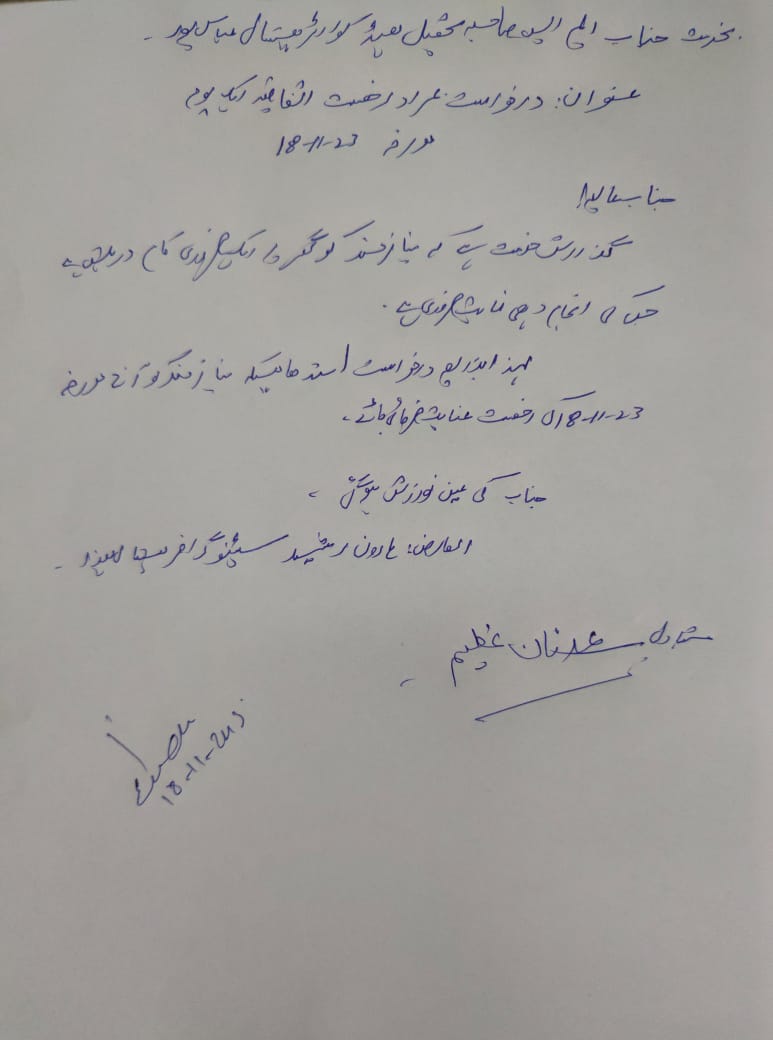 بخدمت جناب ایم ایس صاحب تحصیل ہیڈ کوارٹر ہسپتال عباس پور۔
عنوان: درخواست بمراد رخصت اتفاقیہ ایک یوم
مورخہ 18-11-23
جناب عالیہ!
گذارش خدمت ہے کہ نیازمند کو گھر پر ایک ضروری کام درپیش ہے
جس کی انجام دہی نہایت ضروری ہے۔
لہذا بذریعہ درخواست استدعا ہیکہ نیازمند کو آج مورخہ
18-11-23 کی رخصت عنایت فرمائی جائے۔
جناب کی عین نوازش ہوگی۔
العارض: ہارون رشید سینٹوگرافر
متبادل عدنان عظیم
18-11-2023